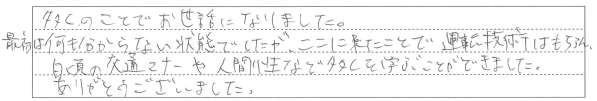 多くのことでお世話になりました。
最初は何も分からない状態でしたが、ここに来たことで運転技術はもちろん、
日頃の交通マナーや人間性など多くを学ぶことができました。
ありがとうございました。